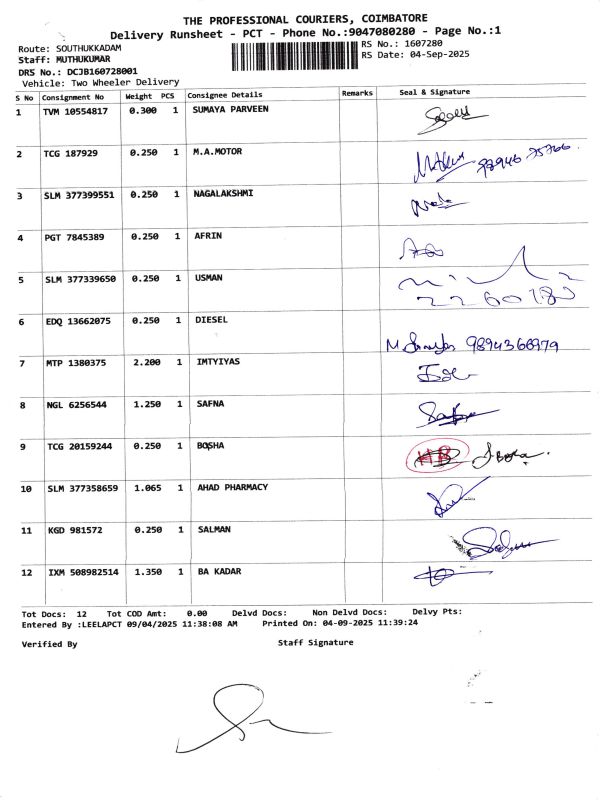 THE PROFESSIONAL COURIERS, COIMBATORE
Delivery Runsheet - PCT - Phone No.:9047080280 - Page No.:1
Route: SOUTHUKKADAM RS No.: 1607280
Staff: MUTHUKUMAR RS Date: 04-Sep-2025
DRS No.: DCJB160728001
Vehicle: Two Wheeler Delivery
S No Consignment No Weight PCS Consignee Details Remarks Seal & Signature
1 TVM 10554817 0.300 1 SUMAYA PARVEEN
2 TCG 187929 0.250 1 M.A.MOTOR
3 SLM 377399551 0.250 1 NAGALAKSHMI
4 PGT 7845389 0.250 1 AFRIN
5 SLM 377339650 0.250 1 USMAN
6 EDQ 13662075 0.250 1 DIESEL
7 MTP 1380375 2.200 1 IMTYIYAS
8 NGL 6256544 1.250 1 SAFNA
9 TCG 20159244 0.250 1 BOSHA
10 SLM 377358659 1.065 1 AHAD PHARMACY
11 KGD 981572 0.250 1 SALMAN
12 IXM 508982514 1.350 1 BA KADAR
Tot Docs: 12 Tot COD Amt: 0.00 Delvd Docs: Non Delvd Docs: Delvy Pts:
Entered By :LEELAPCT 09/04/2025 11:38:08 AM Printed On: 04-09-2025 11:39:24
Verified By Staff Signature